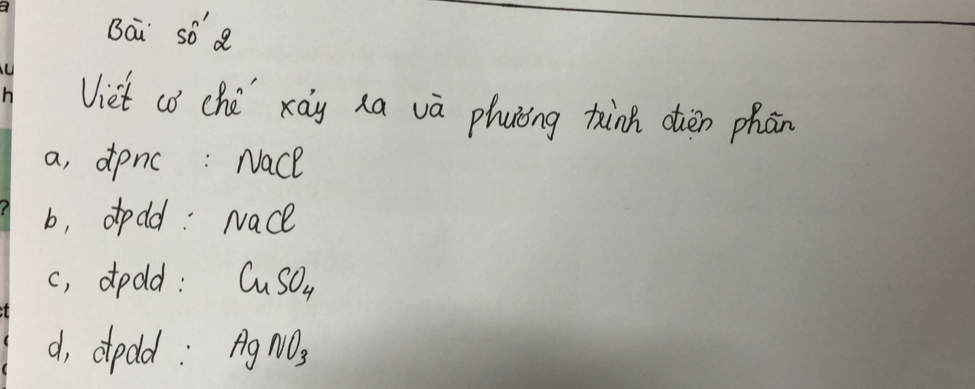 Bài số 2
Viết cơ chế xảy ra và phương trình điện phân
a, đpnc : NaCl
b, đpdd : NaCl
c, đpdd : CuSO₄
d, đpdd : AgNO₃